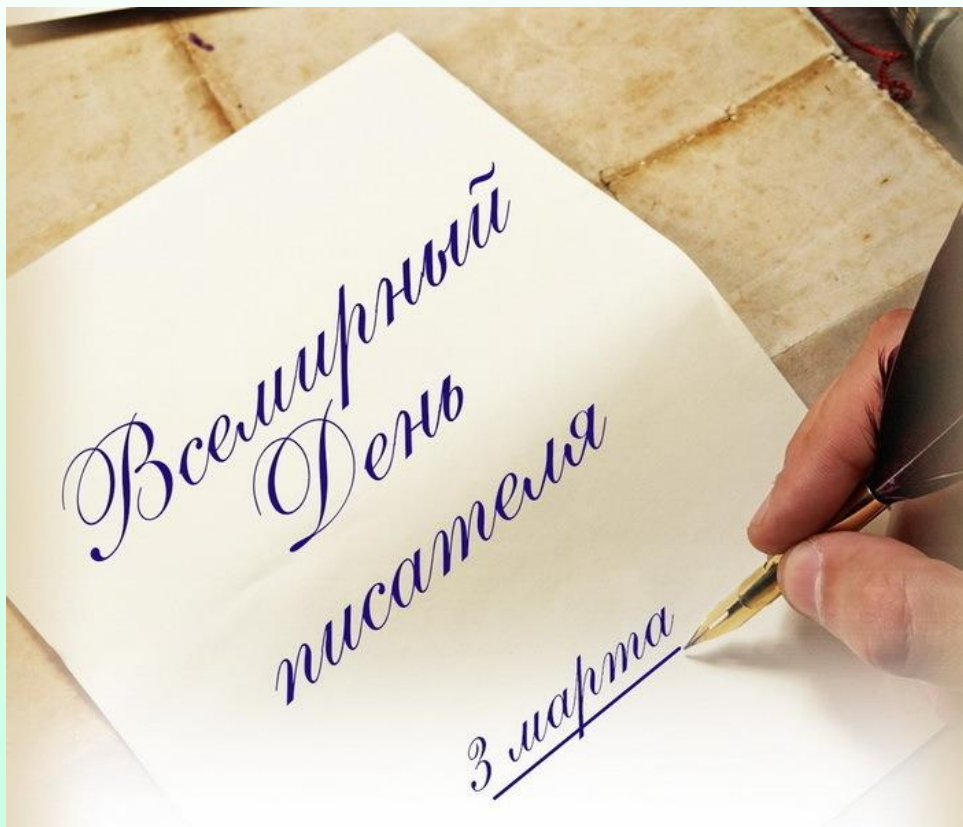 Всемирный
День
писателя
3 марта